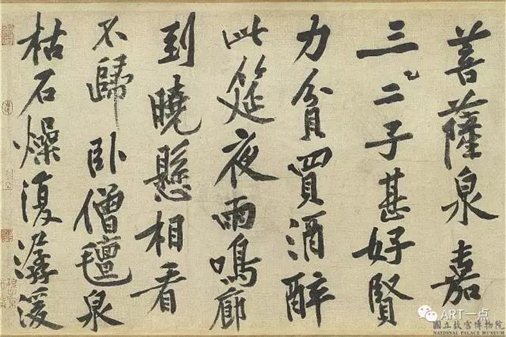 菩薩泉嘉
三二子甚好賢
力貧買酒醉
此筵夜雨鳴廊
到曉懸相看
不歸臥僧氈泉
枯石燥復潺湲
ART一点
國立故宮博物院
NATIONAL PALACE MUSEUM